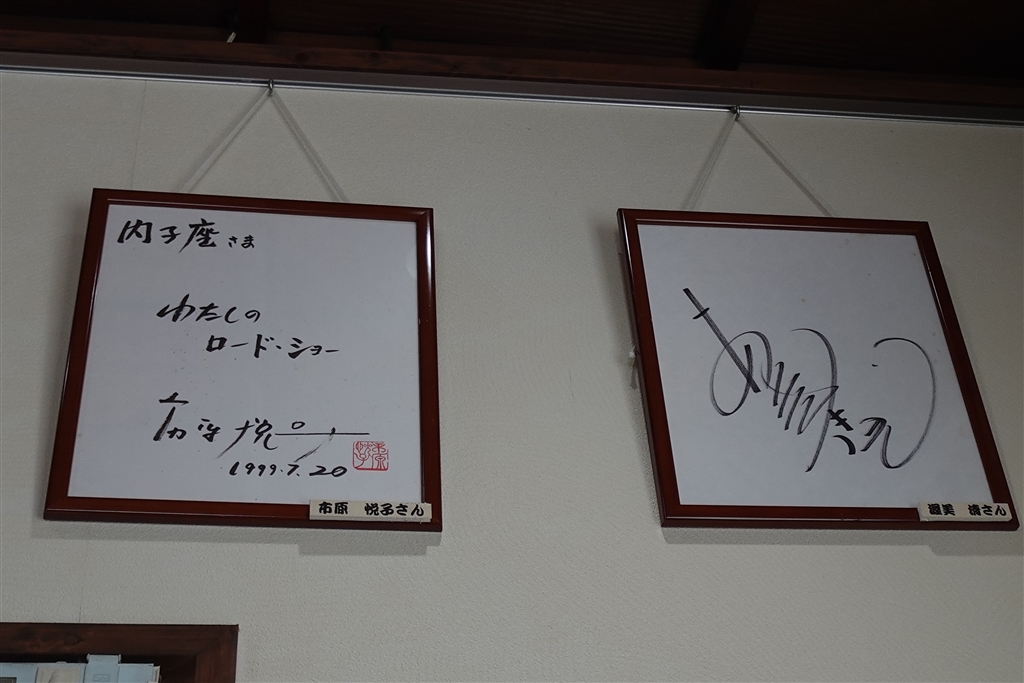 内子座さま
わたしの
ロード・ショー
市原悦子
1999.7.20
市原 悦子さん
渥美 清さん